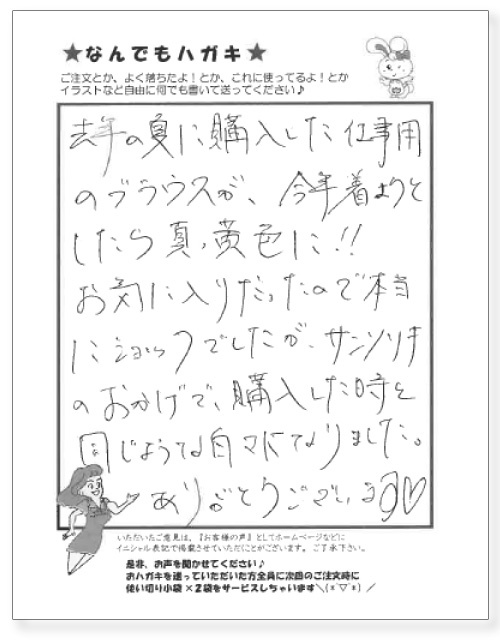 ★なんでもハガキ★
ご注文とか、よく落ちたよ！とか、これに使ってるよ！とか
イラストなど自由に何でも書いて送ってください♪
去年の夏に購入した仕事用
のブラウスが、今年着ようと
したら真っ黄色に!!
お気に入りだったので本当
にショックでしたが、サンソリキ
のおかげで、購入した時と
同じような白さになりました。
ありがとうございます♡
いただいたご意見は、『お客様の声』としてホームページなどに
イニシャル表記で掲載させていただことがございます。ご了承下さい。
是非、お声を聞かせてください♪
おハガキを送っていただいた方全員に次回のご注文時に
使い切り小袋×2袋をサービスしちゃいます＼(*´▽`*)／